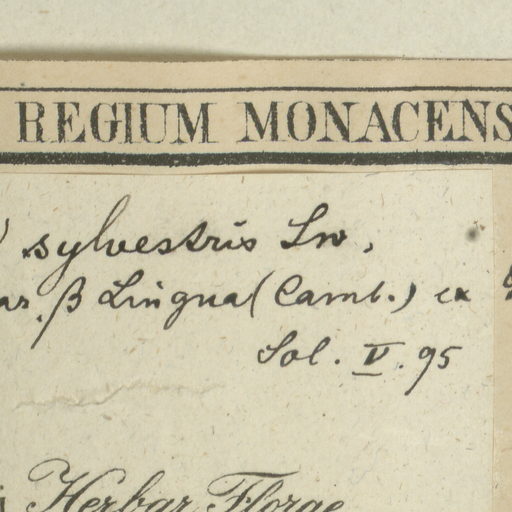 REGIUM MONACENS
) sylvestris Sw.
ar. β Lingua (Camb.) ex
Sol. V. 95
i Herbar. Florae